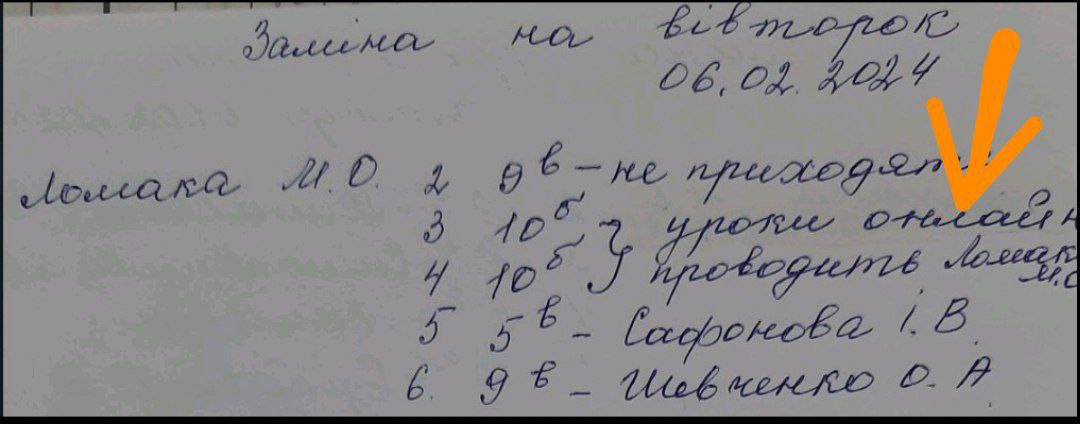 Заміна на вівторок
06.02.2024
Ломака М.О. 2 9в – не приходять
3 10б } уроки онлайн
4 10б } проводить Ломак
М.О
5 5в – Сафонова І.В
6. 9в – Шевченко О.А